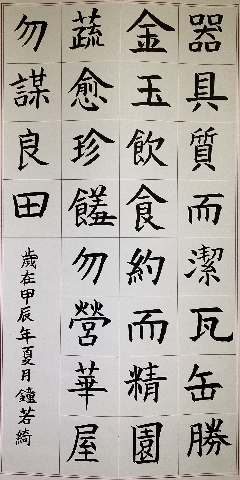 器具質而潔瓦缶勝
金玉飲食約而精園
蔬愈珍饈勿營華屋
勿謀良田
歲在甲辰年夏月鐘若綺